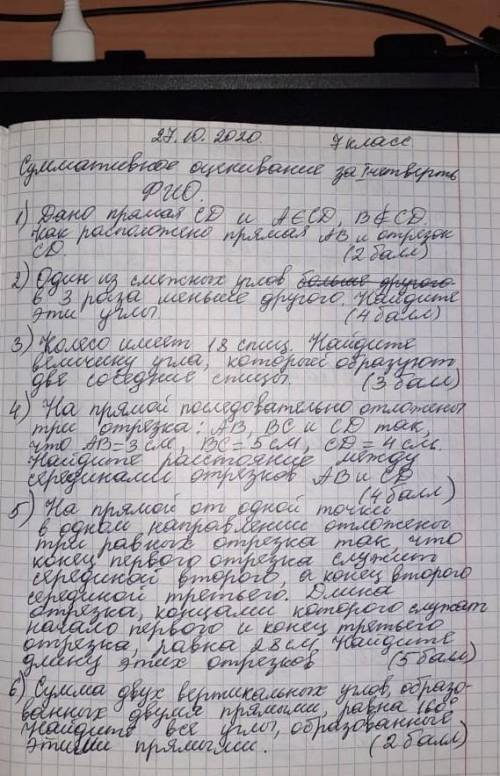 27.10.2020. 7 класс
Суммативное оценивание за I четверть
ФИО.
1) Дано прямая CD и A∈CD, B∉CD
Как расположено прямая AB и отрезок
CD. (2 балл)
2) Один из смежных углов больше другого
в 3 раза меньше другого. Найдите
эти углы. (4 балл)
3) Колесо имеет 18 спиц. Найдите
величину угла, который образуют
две соседние спицы. (3 балл)
4) На прямой последовательно отложены
три отрезка: AB, BC и CD так,
что AB=3см, BC=5см, CD=4см.
Найдите расстояние между
серединами отрезков AB и CD
(4 балл)
5) На прямой от одной точки
в одном направлении отложены
три равных отрезка так, что
конец первого отрезка служит
серединой второго, а конец второго
серединой третьего. Длина
отрезка, концами которого служат
начало первого и конец третьего
отрезка, равна 28см. Найдите
длину этих отрезков (5 балл)
6) Сумма двух вертикальных углов, образо-
ванных двумя прямыми, равна 160°
Найдите все углы, образованные
этими прямыми. (2 балл)